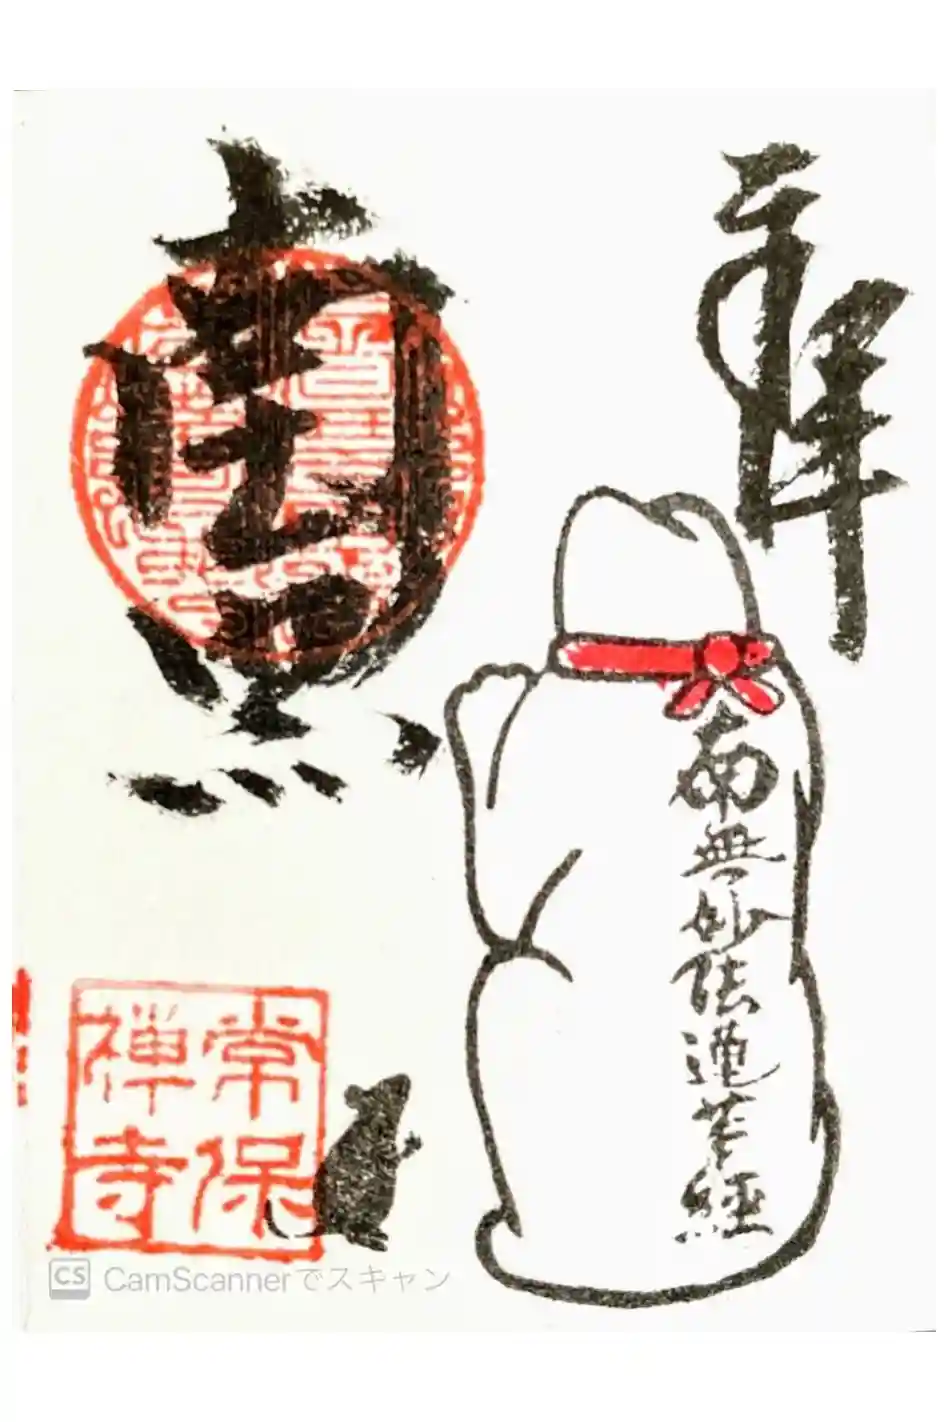 奉拝
南無妙法蓮華經
常保
禅寺
CS CamScannerでスキャン